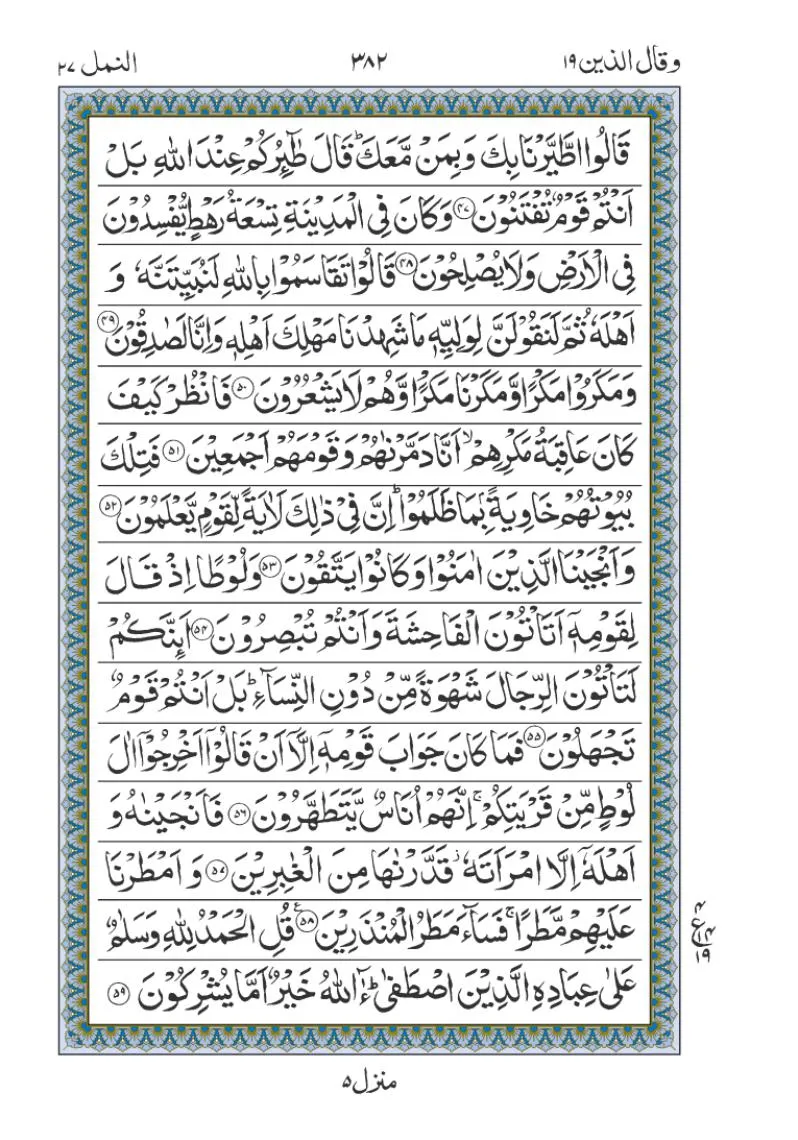 وقال الذين ١٩
٣٨٢
النمل ٢٧
قَالُوا اطَّيَّرْنَا بِكَ وَبِمَنْ مَّعَكَ ؕ قَالَ طٰٓئِرُكُمْ عِنْدَ اللّٰهِ بَلْ
اَنْتُمْ قَوْمٌ تُفْتَنُوْنَ ﴿۴۷﴾ وَكَانَ فِی الْمَدِیْنَةِ تِسْعَةُ رَهْطٍ یُّفْسِدُوْنَ
فِی الْاَرْضِ وَلَا یُصْلِحُوْنَ ﴿۴۸﴾ قَالُوْا تَقَاسَمُوْا بِاللّٰهِ لَنُبَیِّتَنَّهٗ وَ
اَهْلَهٗ ثُمَّ لَنَقُوْلَنَّ لِوَلِیِّهٖ مَا شَهِدْنَا مَهْلِكَ اَهْلِهٖ وَاِنَّا لَصٰدِقُوْنَ ﴿۴۹﴾
وَمَكَرُوْا مَكْرًا وَّمَكَرْنَا مَكْرًا وَّهُمْ لَا یَشْعُرُوْنَ ﴿۵۰﴾ فَانْظُرْ كَیْفَ
كَانَ عَاقِبَةُ مَكْرِهِمْ ۙ اَنَّا دَمَّرْنٰهُمْ وَقَوْمَهُمْ اَجْمَعِیْنَ ﴿۵۱﴾ فَتِلْكَ
بُیُوْتُهُمْ خَاوِیَةًۢ بِمَا ظَلَمُوْا ؕ اِنَّ فِیْ ذٰلِكَ لَاٰیَةً لِّقَوْمٍ یَّعْلَمُوْنَ ﴿۵۲﴾
وَاَنْجَیْنَا الَّذِیْنَ اٰمَنُوْا وَكَانُوْا یَتَّقُوْنَ ﴿۵۳﴾ وَلُوْطًا اِذْ قَالَ
لِقَوْمِهٖۤ اَتَاْتُوْنَ الْفَاحِشَةَ وَاَنْتُمْ تُبْصِرُوْنَ ﴿۵۴﴾ اَئِنَّكُمْ
لَتَاْتُوْنَ الرِّجَالَ شَهْوَةً مِّنْ دُوْنِ النِّسَآءِ ؕ بَلْ اَنْتُمْ قَوْمٌ
تَجْهَلُوْنَ ﴿۵۵﴾ فَمَا كَانَ جَوَابَ قَوْمِهٖۤ اِلَّاۤ اَنْ قَالُوْۤا اَخْرِجُوْۤا اٰلَ
لُوْطٍ مِّنْ قَرْیَتِكُمْ ۚ اِنَّهُمْ اُنَاسٌ یَّتَطَهَّرُوْنَ ﴿۵۶﴾ فَاَنْجَیْنٰهُ وَ
اَهْلَهٗۤ اِلَّا امْرَاَتَهٗ ؗ قَدَّرْنٰهَا مِنَ الْغٰبِرِیْنَ ﴿۵۷﴾ وَ اَمْطَرْنَا
عَلَیْهِمْ مَّطَرًا ۚ فَسَآءَ مَطَرُ الْمُنْذَرِیْنَ ﴿۵۸﴾ قُلِ الْحَمْدُ لِلّٰهِ وَسَلٰمٌ
عَلٰی عِبَادِهِ الَّذِیْنَ اصْطَفٰی ؕ ءٰٓاللّٰهُ خَیْرٌ اَمَّا یُشْرِكُوْنَ ﴿۵۹﴾
۴
ع
۱۴
۱۹
منزل ۵